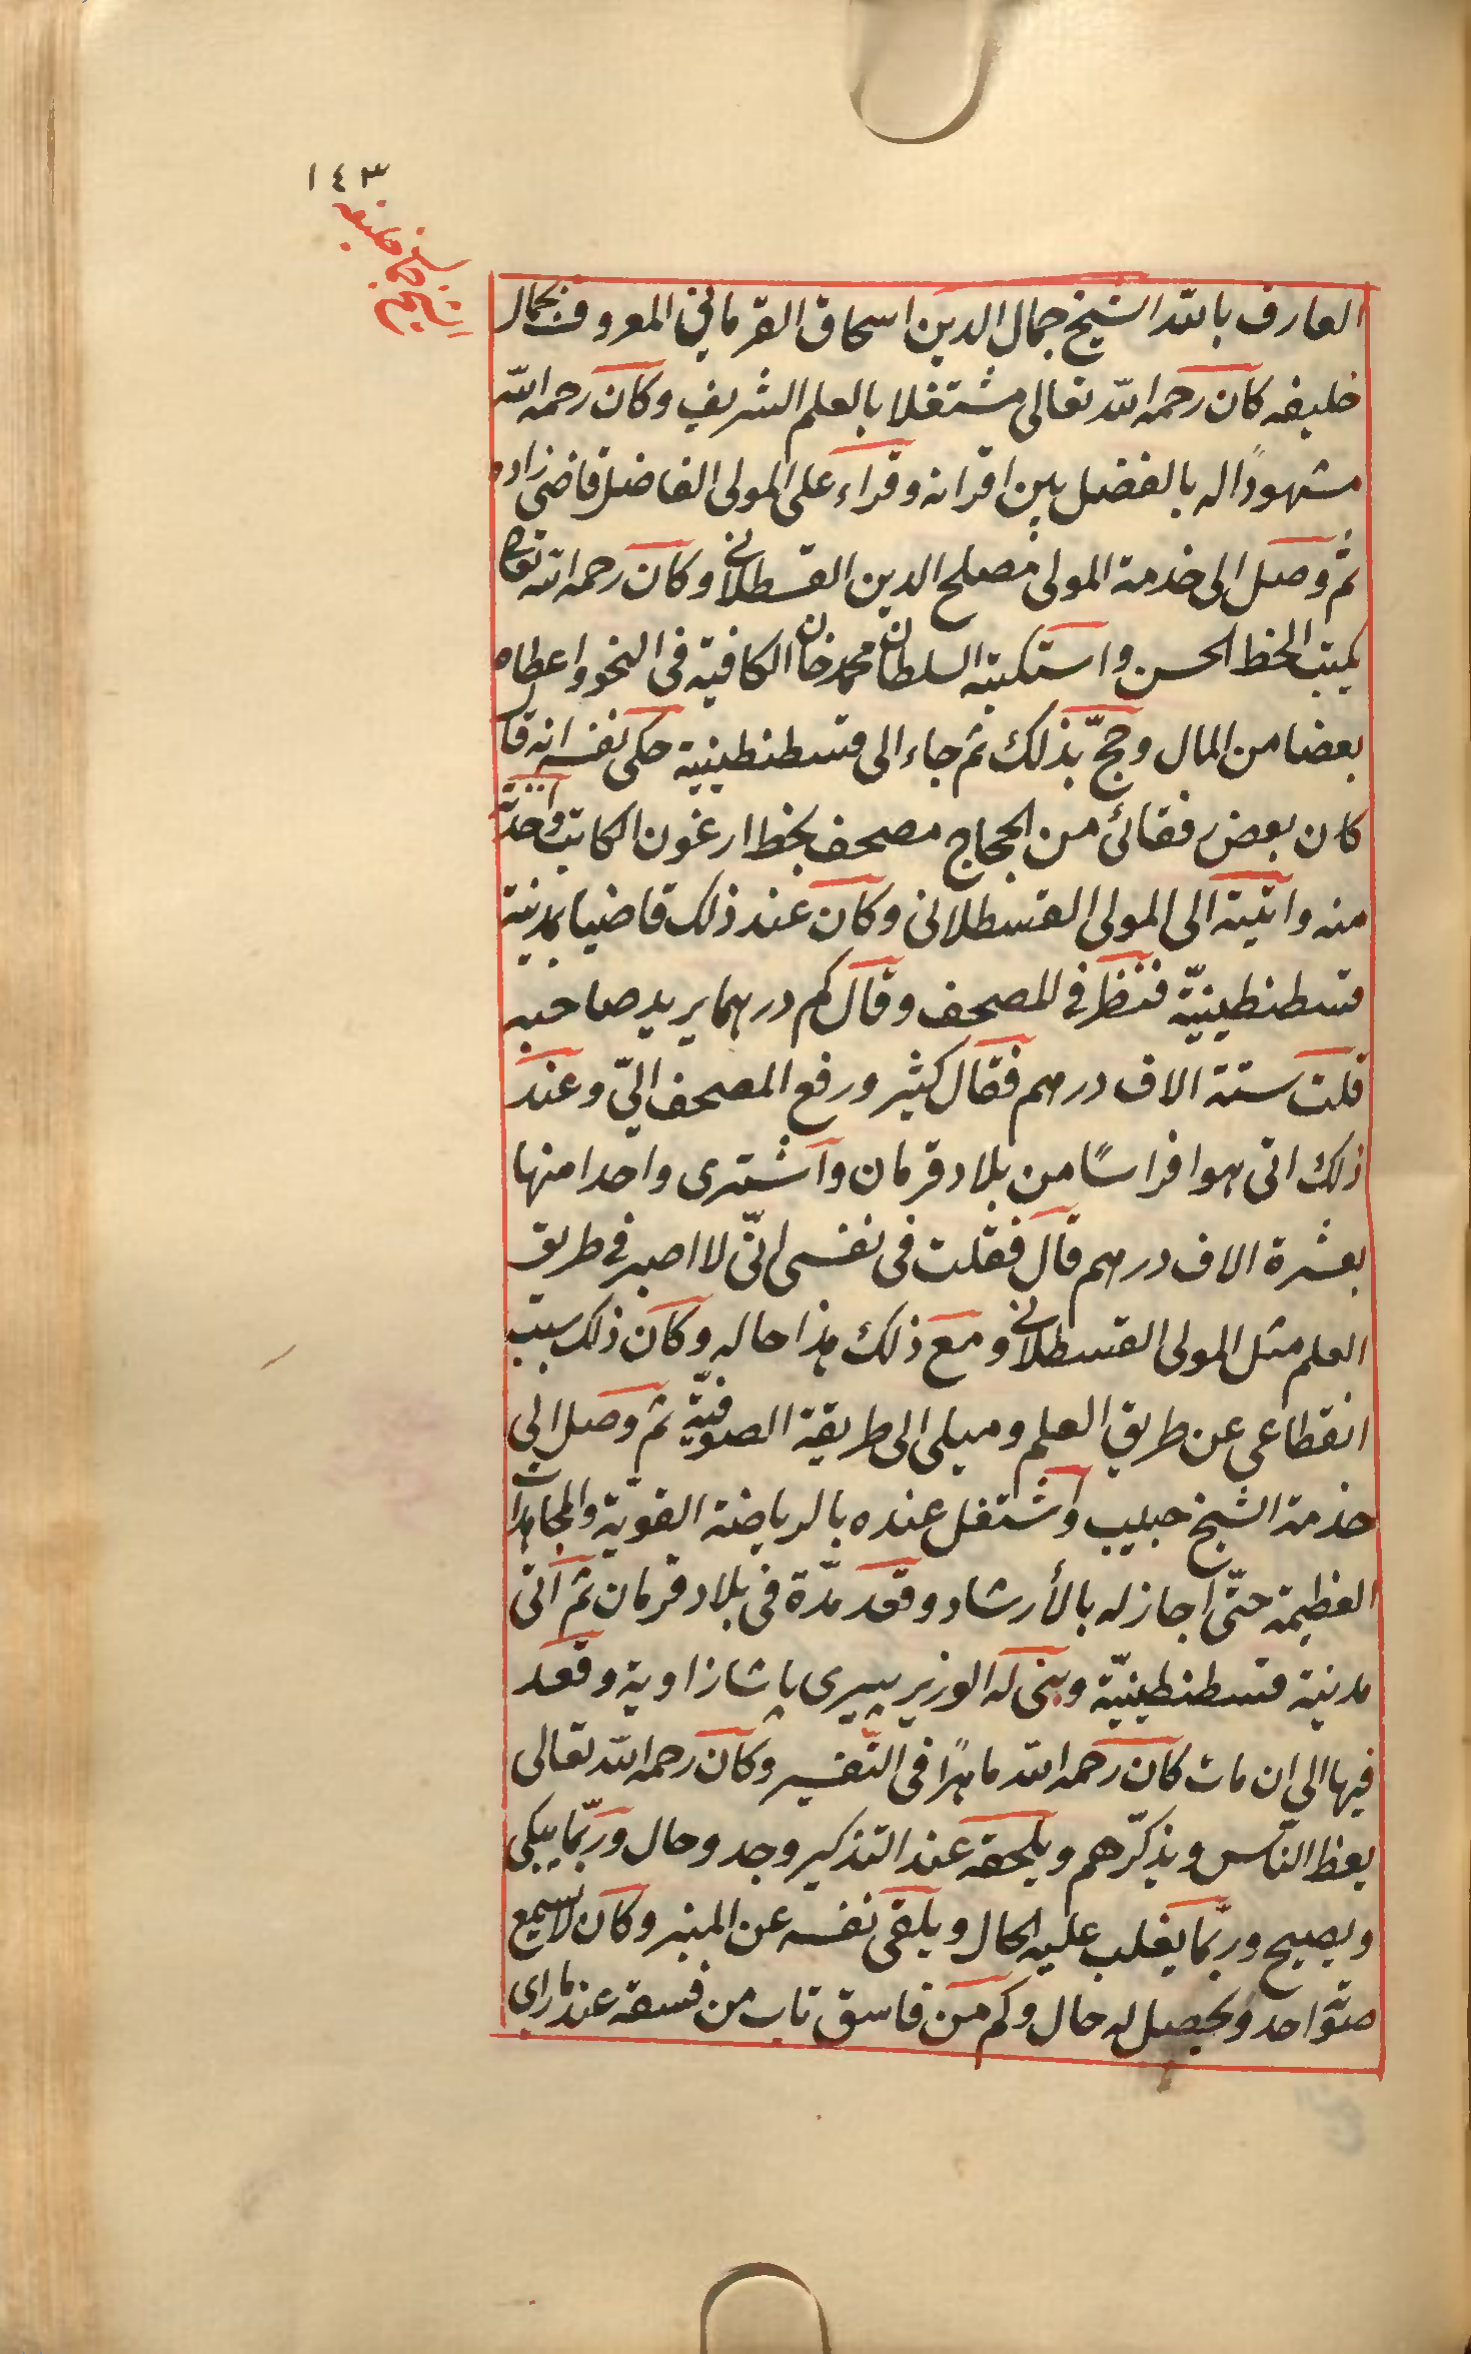 ١٤٣
الشيخ جمال خليفه
العارف بالله الشيخ جمال الدين اسحاق القرماني المعروف بجمال
خليفه كان رحمه الله تعالى مشتغلا بالعلم الشريف وكان رحمه الله
مشهودًا له بالفضل بين اقرانه وقراء على المولى الفاضل قاضى زاده
ثم وصل الى خدمة المولى مصلح الدين القسطلانى وكان رحمه الله تعالى
يكتب الخط الحسن واستكتبه السلطان محمد خان الكافية فى النحو واعطاه
بعضا من المال وحجّ بذلك ثم جاء الى قسطنطينية حكى نفسه انه قال
كان بعض رفقائى من الحجاج مصحف بخط ارغون الكاتب واخذته
منه واتيته الى المولى القسطلانى وكان عند ذلك قاضيا بمدينة
قسطنطينيّة فنظر فى المصحف وقال كم درهما يريد صاحبه
قلت ستة الاف درهم فقال كثير ورفع المصحف الىّ وعند
ذلك اتى هوا فراسًا من بلاد قرمان واشترى واحدا منها
بعشرة الاف درهم قال فقلت فى نفسى انّى لا اصبر فى طريق
العلم مثل المولى القسطلانى ومع ذلك هذا حاله وكان ذلك سبب
انقطاعى عن طريق العلم وميلى الى طريقة الصوفيّة ثم وصل الى
خدمة الشيخ حبيب واشتغل عنده بالرياضة القويّة والمجاهدات
العظيمة حتّى اجاز له بالأرشاد وقعد مدّة فى بلاد قرمان ثم اتى
مدينة قسطنطينيّة وبنى له الوزير پيرى پاشا زاوية وقعد
فيها الى ان مات كان رحمه الله ماهرًا فى التّفسير وكان رحمه الله تعالى
يعظ النّاس ويذكّرهم ويلحقه عند التذكير وجد وحال وربّما يبكى
ويصيح وربّما يغلب عليه الحال ويلقى نفسه عن المنبر وكان لا يسمع
صوته احد ويحصل له حال وكم من فاسق تاب من فسقه عند ما راى